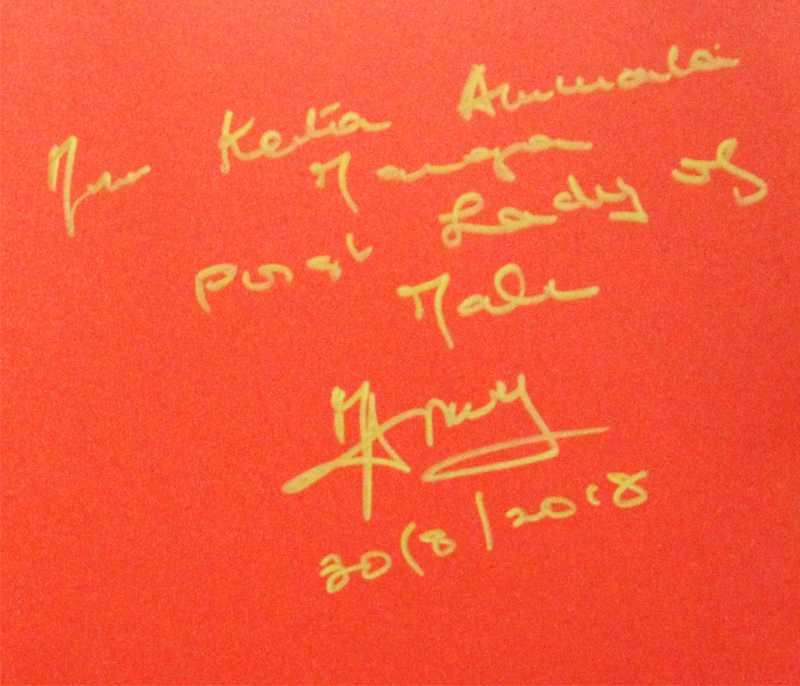 Mrs Keita Aminata
Maiga
First Lady of
Mali
30/8/2018